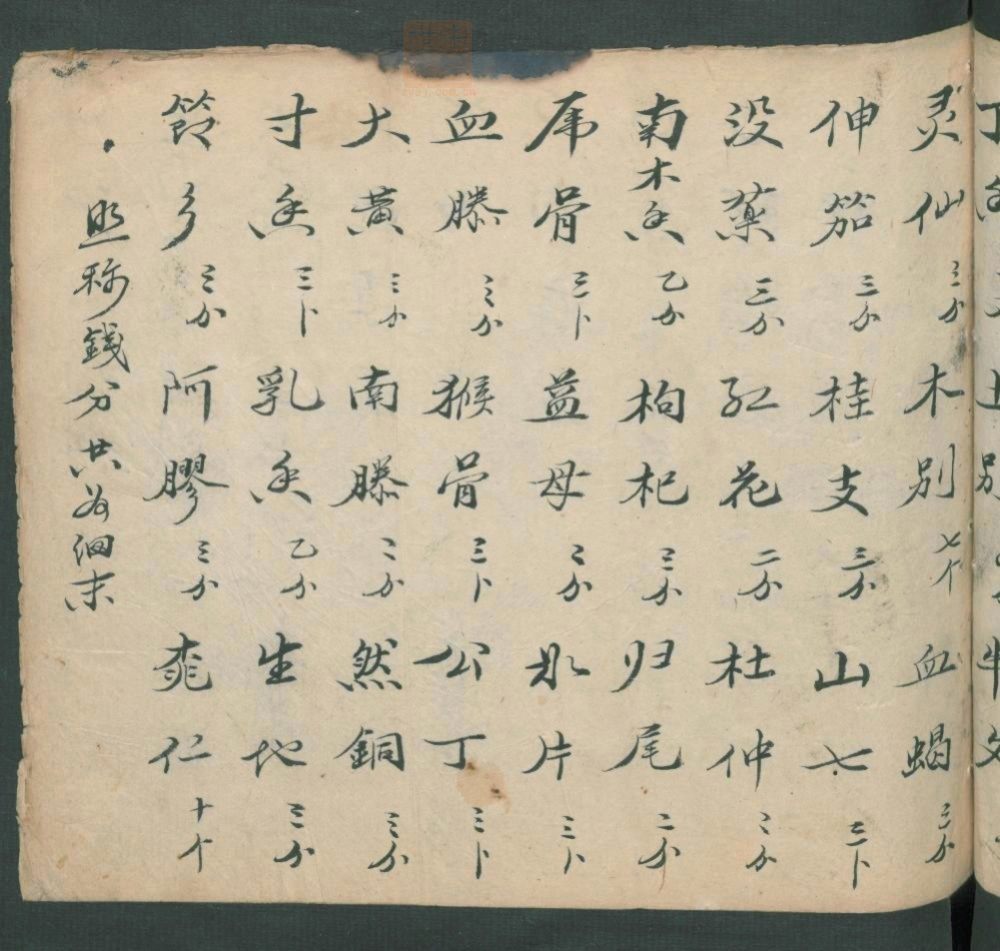 灵仙三分木别七个血蝎三分
伸筋三分桂支三分山七三卜
没藥三分红花二分杜仲三分
南木香乙分枸杞三分归尾二分
虎骨三卜益母三分氷片三卜
血滕三分猴骨三卜公丁三卜
大黃三分南滕二分然銅三分
寸香三卜乳香乙分生地三分
三分阿膠三分桃仁十个
照称錢分共为细末